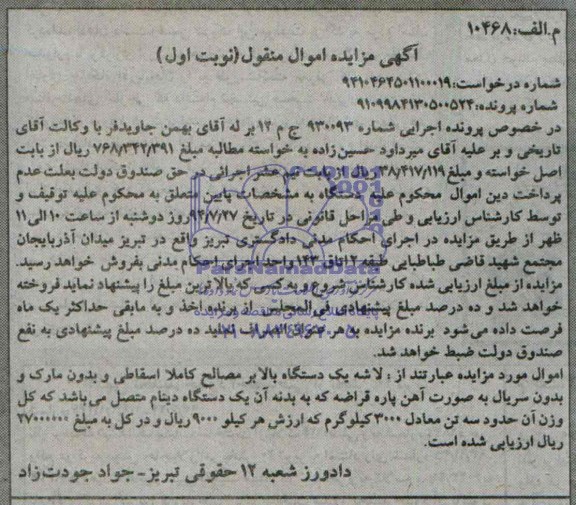 م.الف:۱۰۴۶۸
آگهی مزایده اموال منقول(نوبت اول)
شماره درخواست:۹۴۱۰۴۶۴۵۰۱۱۰۰۰۱۹
شماره پرونده:۹۱۰۹۹۸۴۱۳۰۵۰۰۵۲۴
در خصوص پرونده اجرایی شماره ۹۳۰۰۹۳ ج م ۱۲ بر له آقای بهمن جاویدفر با وکالت آقای
تاریخی و بر علیه آقای میرداود حسین‌زاده به خواسته مطالبه مبلغ ۷۶۸/۳۴۲/۳۹۱ ریال از بابت
اصل خواسته و مبلغ ۳۸/۴۱۷/۱۱۹ ریال از بابت نیم عشر اجرائی در حق صندوق دولت بعلت عدم
پرداخت دین اموال محکوم علیه دستگاه به مشخصات پایین متعلق به محکوم علیه توقیف و
توسط کارشناس ارزیابی و طی مراحل قانونی در تاریخ ۹۴/۷/۲۷ روز دوشنبه از ساعت ۱۰ الی ۱۱
ظهر از طریق مزایده در اجرای احکام مدنی دادگستری تبریز واقع در تبریز میدان آذربایجان
مجتمع شهید قاضی طباطبایی طبقه ۲ اتاق ۱۴۳ واحد اجرای احکام مدنی بفروش خواهد رسید.
مزایده از مبلغ ارزیابی شده کارشناس شروع و به کسی که بالاترین مبلغ را پیشنهاد نماید فروخته
خواهد شد و ده درصد مبلغ پیشنهادی فی‌المجلس از برنده اخذ و به مابقی حداکثر یک ماه
فرصت داده می‌شود برنده مزایده به هر عنوان انصراف نماید ده درصد مبلغ پیشنهادی به نفع
صندوق دولت ضبط خواهد شد.
اموال مورد مزایده عبارتند از : لاشه یک دستگاه بالابر مصالح کاملا اسقاطی و بدون مارک و
بدون سریال به صورت آهن پاره قراضه که به بدنه آن یک دستگاه دینام متصل می‌باشد که کل
وزن آن حدود سه تن معادل ۳۰۰۰ کیلوگرم که ارزش هر کیلو ۹۰۰۰ ریال و در کل به مبلغ ۲۷۰۰۰۰۰۰
ریال ارزیابی شده است.
دادورز شعبه ۱۲ حقوقی تبریز- جواد جودت‌زاد
ParsNamadData